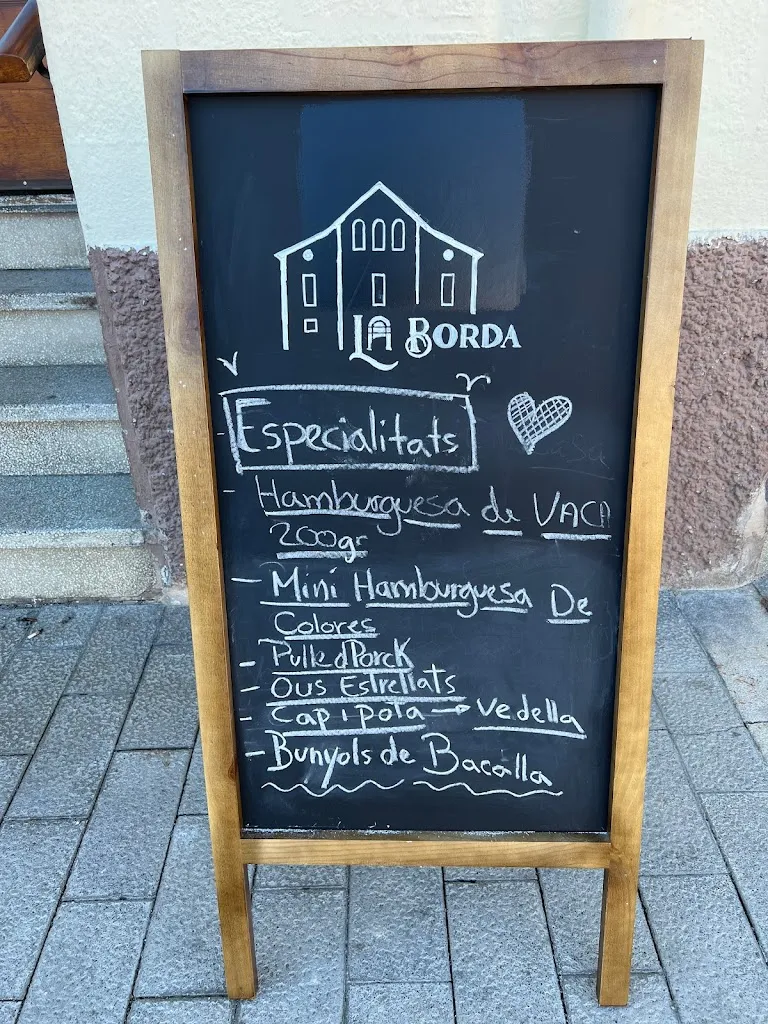 LA BORDA
Especialitats
- Hamburguesa de VACA
200gr
- Mini Hamburguesa De
Colores
- Pulled Porck
- Ous Estrellats
- Cap i pota → vedella
- Bunyols de Bacalla